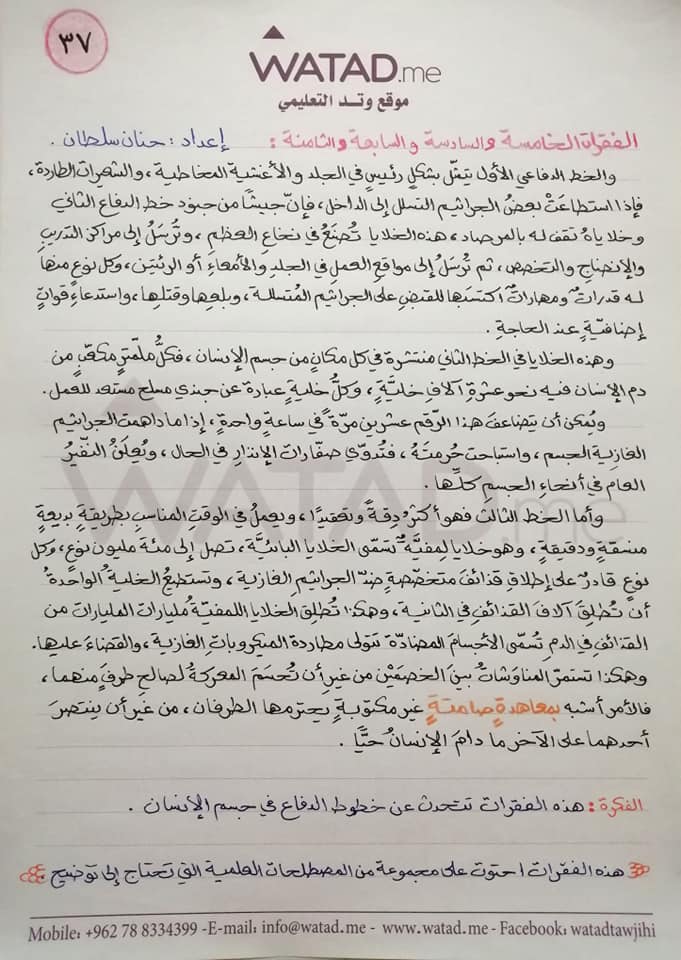 ٣٧
WATAD.me
موقع وتد التعليمي
الفقرات الخامسة والسادسة والسابعة والثامنة : إعداد : حنان سلطان .
والخط الدفاعي الأول يتمثّل بشكلٍ رئيسيٍ في الجلد والأغشية المخاطية ، والشعيرات الطاردة ،
فإذا استطاعَتْ بعضُ الجراثيم التسلل إلى الداخل ، فإنّ جيشًا من جنود خط الدفاع الثاني
وخلاياهُ تقف له بالمرصاد ، هذه الخلايا تُصنَعُ في نخاع العظم ، وتُرسَلُ إلى مراكز التدريبِ
والإنضاجِ والتخصص ، ثم تُرسَلُ إلى مواقع العملِ في الجلدِ والأمعاءِ أو الرئتين ، وكل نوعٍ منها
له قدراتٌ ومهاراتٌ اكتسبها للقبضِ على الجراثيم المُتسللة ، وبلعها وقتلها ، واستدعاءِ قواتٍ
إضافيّةٍ عند الحاجة .
وهذه الخلايا في الخط الثاني منتشرة في كل مكانٍ من جسم الإنسان ، فكلُّ ملّمترٍ مكعّبٍ من
دم الإنسان فيه نحو عشرةِ آلافِ خليّةٍ ، وكلُّ خليةٍ عبارة عن جندي مسلح مستعد للعمل .
ويُمكن أن يتضاعفَ هذا الرّقم عشرين مرّةً في ساعةٍ واحدةٍ ، إذا ما داهمت الجراثيم
الغازية الجسم ، واستباحت حُرمتَهُ ، فتُدوّي صفّارات الإنذارِ في الحال ، ويُعلَنُ النفيرُ
العام في أنحاءِ الجسمِ كلِّها .
وأما الخط الثالث فهو أكثرُ دقةً وتعقيدًا ، ويعملُ في الوقتِ المناسبِ بطريقةٍ بديعةٍ
منسقةٍ ودقيقةٍ ، وهو خلايا لِمفيّةٌ تسمّى الخلايا البائيَّة ، تصل إلى مئة مليون نوعٍ ، وكل
نوعٍ قادرٌ على إطلاقِ قذائفَ متخصّصةٍ ضدّ الجراثيم الغازية ، وتستطيعُ الخليةُ الواحدةُ
أن تُطلقَ آلافَ القذائفِ في الثانية ، وهكذا تُطلِق الخلايا اللمفيّة مُليارات المليارات من
القذائفِ في الدمِ تُسمّى الأجسام المضادّة تتولى مطاردة الميكروباتِ الغازية ، والقضاءَ عليها .
وهكذا تستمرّ المناوشاتُ بينَ الخصمَيْن من غيرِ أن تُحسَمَ المعركةُ لصالحِ طرفٍ منهما ،
فالأمر أشبه بمعاهدةٍ صامتةٍ غير مكتوبةٍ يحترمها الطرفان ، من غيرِ أن ينتصرَ
أحدهما على الآخر ما دامَ الإنسانُ حيًّا .
الفكرة : هذه الفقرات تتحدث عن خطوط الدفاع في جسم الإنسان .
هذه الفقرات احتوت على مجموعة من المصطلحات العلمية التي تحتاج إلى توضيح :
Mobile: +962 78 8334399 -E-mail: info@watad.me - www.watad.me - Facebook: watadtawjihi